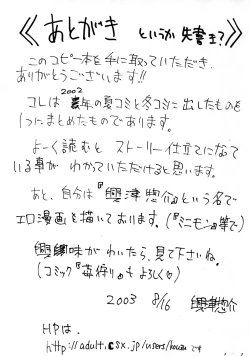 《あとがき というか 先書き?》
このコピー本を手に取っていただき、
ありがとうございます!!
コレは 2002年の夏コミと冬コミに出したものを
1つにまとめたものであります。
よーく読むと ストーリー仕立てになって
いる事が わかっていただけると思います。
あと、自分は『興津惣介』という名で
エロ漫画を描いております。(『ミニモン』等で)
興味がわいたら、見て下さいね。
(コミック『苺狩り』もよろしく♡)
2003 8/16 興津惣介
HPは、
http://adult.csx.jp/users/です